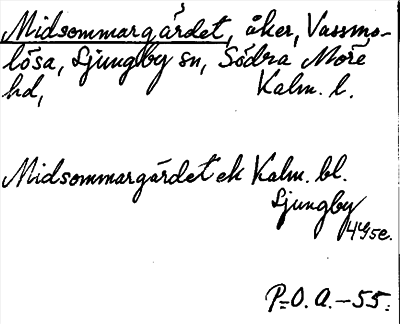 Midsommargärdet, åker, Vassmo-
lösa, Ljungby sn, Södra Möre
hd, Kalm. l.
Midsommargärdet ek Kalm. bl.
Ljungby
P=O. A.-55.